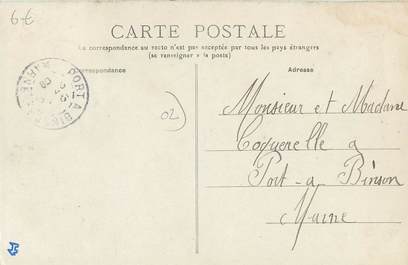 6€
CARTE POSTALE
La correspondance au recto n'est pas acceptée par tous les pays étrangers
(se renseigner à la poste)
Correspondance
Adresse
PORT-A-BIN
MARNE
02
Monsieur et Madame
Coquerelle a
Port-a-Binson
Marne